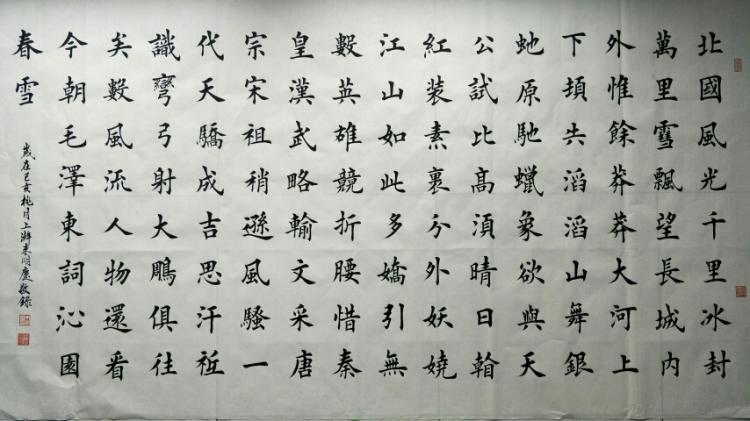 北國風光千里冰封
萬里雪飄望長城內
外惟餘莽莽大河上
下頓失滔滔山舞銀
虵原馳蠟象欲與天
公試比高須晴日看
紅裝素裹分外妖嬈
江山如此多嬌引無
數英雄競折腰惜秦
皇漢武略輸文采唐
宗宋祖稍遜風騷一
代天驕成吉思汗祇
識彎弓射大鵰俱往
矣數風流人物還看
今朝毛澤東詞沁園
春雪
歲在己亥桃月上澣朱明慶敬錄